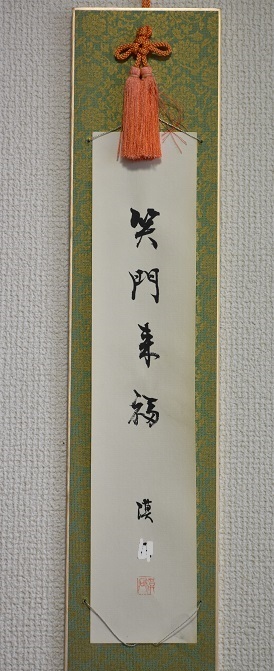 笑門来福
漠